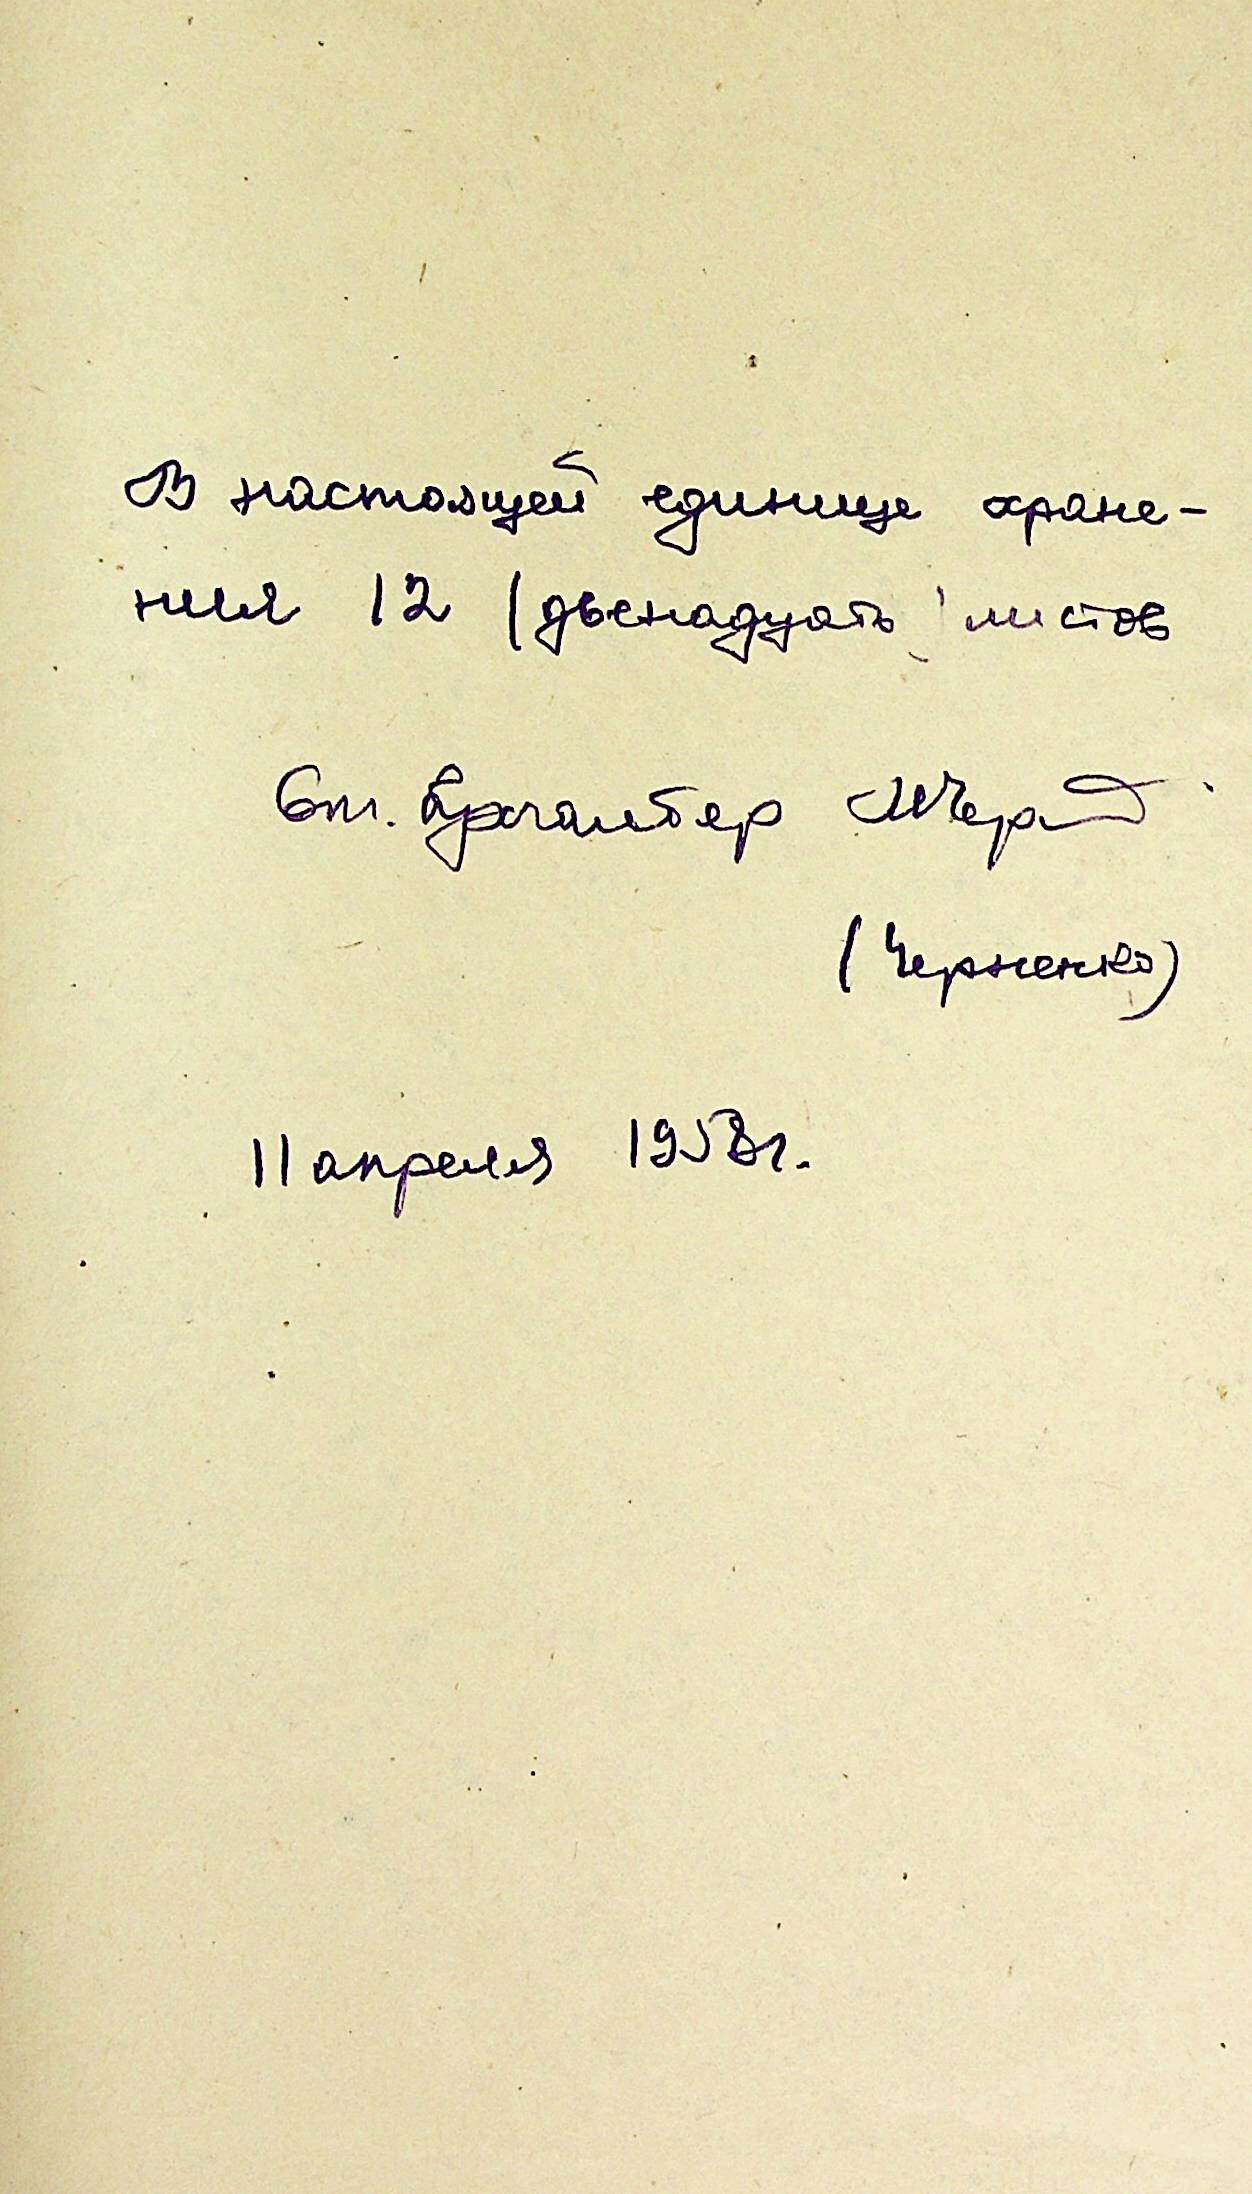 В настоящей единице хране-
ния 12 (двенадцать) листов
Ст. бухгалтер МЧер
(Черненко)
11 апреля 1958 г.